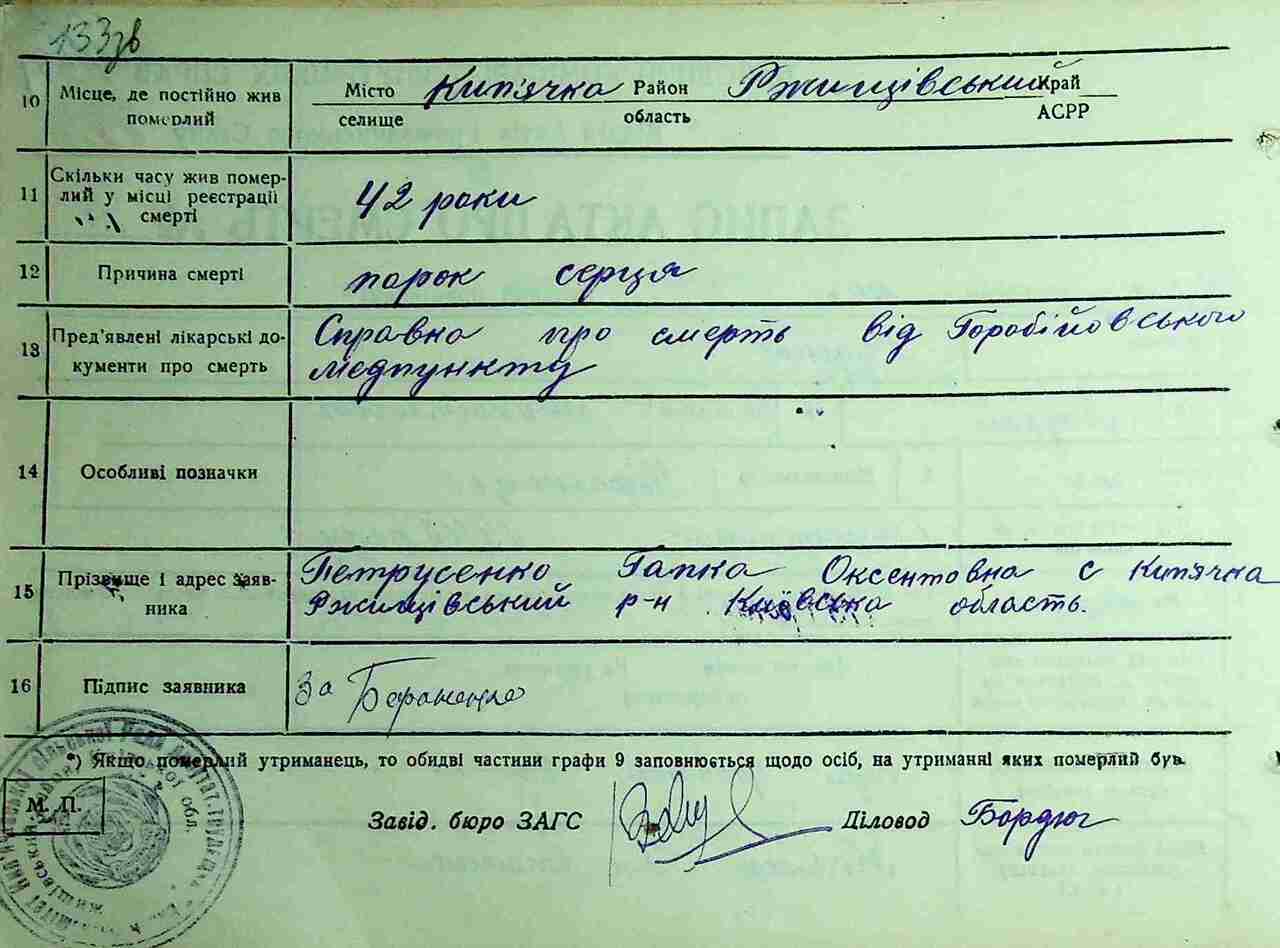 133зв
10 Місце, де постійно жив померлий Місто Кип'ячка Район Ржищівський Край
селище область АСРР
11 Скільки часу жив помер-
лий у місці реєстрації 42 роки
смерті
12 Причина смерті порок серця
13 Пред'явлені лікарські до- Справка про смерть від Горобійовського
кументи про смерть медпункту
14 Особливі позначки
15 Прізвище і адрес заяв- Петрусенко Гапка Оксентовна с Кипячка
ника Ржищівський р-н Київська область.
16 Підпис заявника За
*) Якщо померлий утриманець, то обидві частини графи 9 заповнюється щодо осіб, на утриманні яких померлий був.
М. П.
Завід. бюро ЗАГС Діловод Бордюг